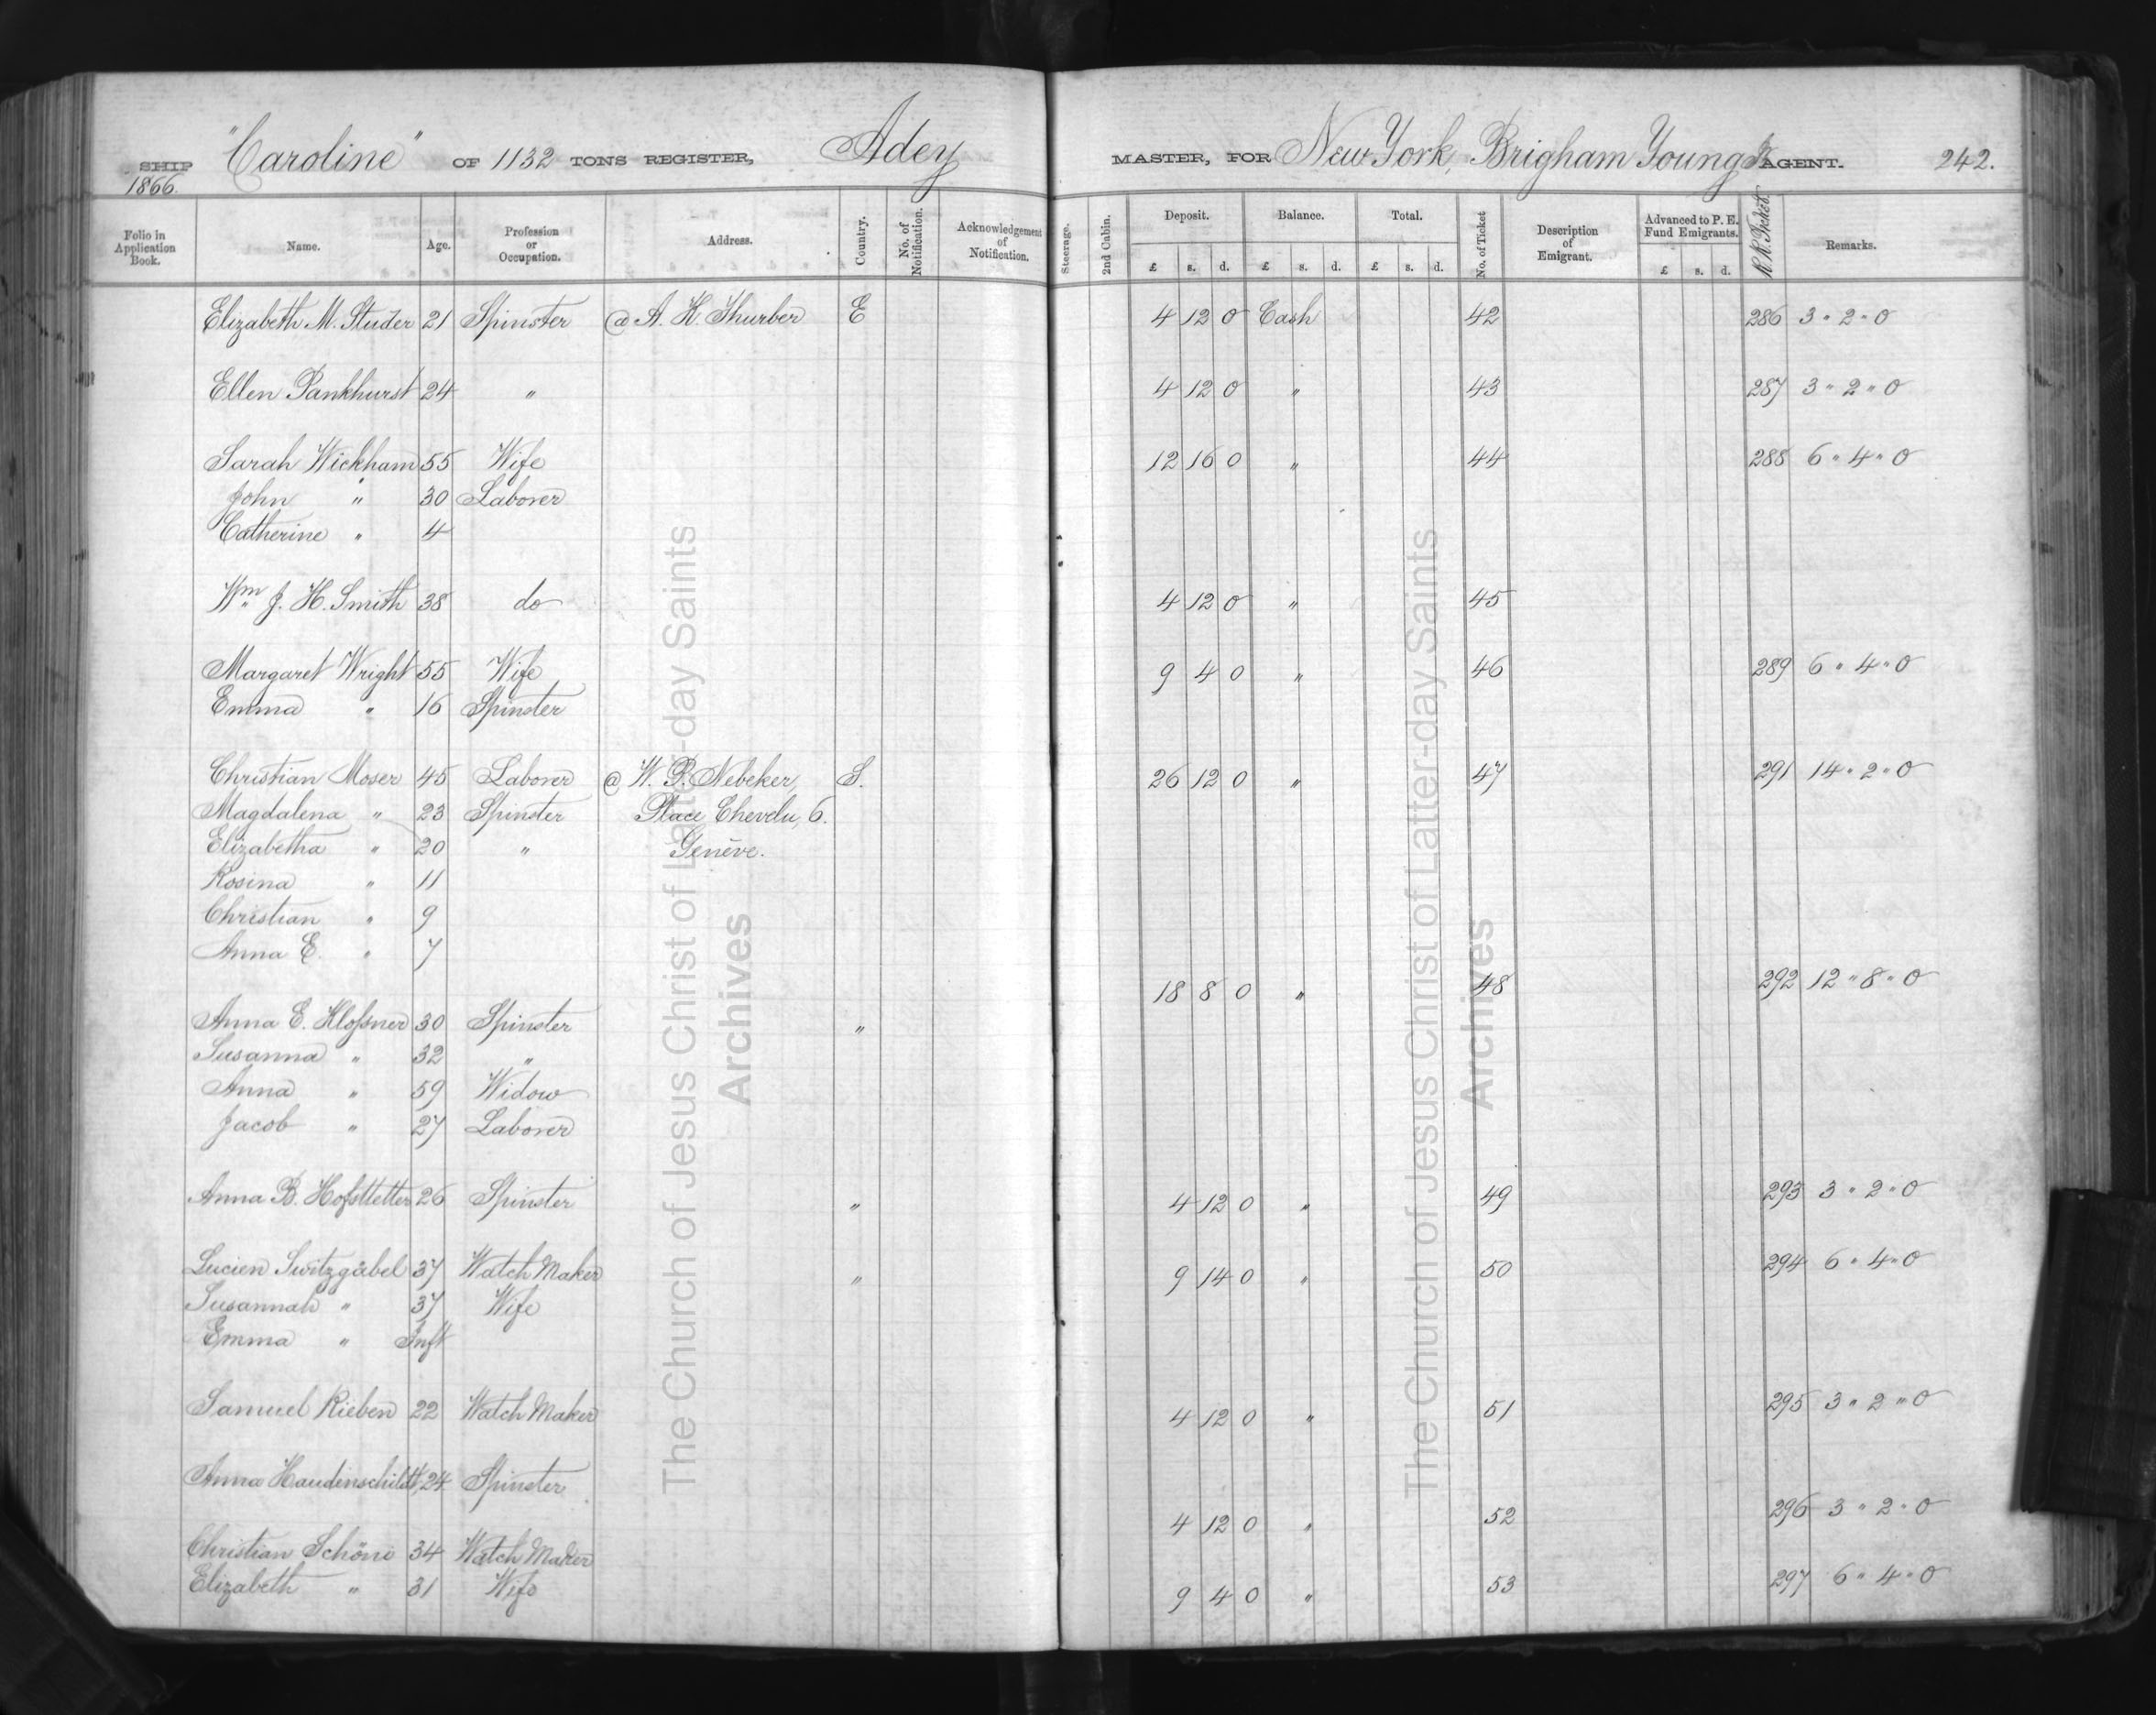 SHIP "Caroline" OF 1132 TONS REGISTER, Adey MASTER, FOR New York, Brigham Young Jr AGENT. 242.
1866.
Folio in Application Book. Name. Age. Profession or Occupation. Address. Country. No. of Notification. Acknowledgement of Notification. Steerage. 2nd Cabin. Deposit. Balance. Total. No. of Ticket Description of Emigrant. Advanced to P. E. Fund Emigrants. R.R. Ticket. Remarks.
£ s. d. £ s. d. £ s. d. £ s. d.
Elizabeth M. Studer 21 Spinster @ A. H. Thurber E 4 12 0 Cash 42 286 3 " 2 " 0
Ellen Pankhurst 24 " 4 12 0 " 43 287 3 " 2 " 0
Sarah Wickham 55 Wife 12 16 0 " 44 288 6 " 4 " 0
John " 30 Laborer
Catherine " 4
Wm J. H. Smith 38 do 4 12 0 " 45
Margaret Wright 55 Wife 9 4 0 " 46 289 6 " 4 " 0
Emma " 16 Spinster
Christian Moser 45 Laborer @ W. P. Nebeker, S. 26 12 0 " 47 291 14 " 2 " 0
Magdalena " 23 Spinster Place Chevelu, 6.
Elizabetha " 20 " Genève.
Rosina " 11
Christian " 9
Anna E. " 7
18 8 0 " 48 292 12 " 8 " 0
Anna E. Klossner 30 Spinster "
Susanna " 32 "
Anna " 59 Widow
Jacob " 27 Laborer
Anna B. Hofsttetter 26 Spinster " 4 12 0 " 49 293 3 " 2 " 0
Lucien Switzgäbel 37 Watch Maker " 9 14 0 " 50 294 6 " 4 " 0
Susannah " 37 Wife
Emma " Inft
Samuel Rieben 22 Watch Maker 4 12 0 " 51 295 3 " 2 " 0
Anna Haudinschildt, 24 Spinster
4 12 0 " 52 296 3 " 2 " 0
Christian Schöni 34 Watch Maker
Elizabeth " 31 Wife 9 4 0 " 53 297 6 " 4 " 0
The Church of Jesus Christ of Latter-day Saints
Archives
The Church of Jesus Christ of Latter-day Saints
Archives